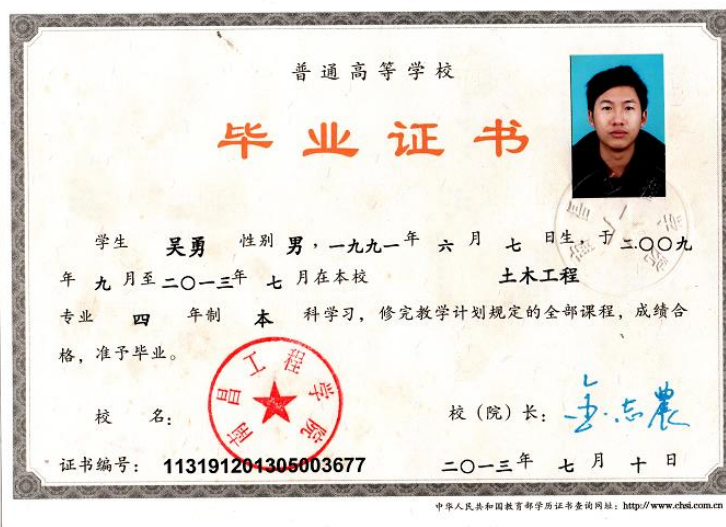 普通高等学校
毕业证书
学生 吴勇 性别 男，一九九一年 六 月 七 日生，于 二〇〇九
年 九 月至 二〇一三年 七 月在本校 土木工程
专业 四 年制 本 科学习，修完教学计划规定的全部课程，成绩合
格，准予毕业。
南昌工程学院
校 名：
校（院）长：金志農
证书编号： 113191201305003677
二〇一三年 七 月 十 日
中华人民共和国教育部学历证书查询网址：http://www.chsi.com.cn